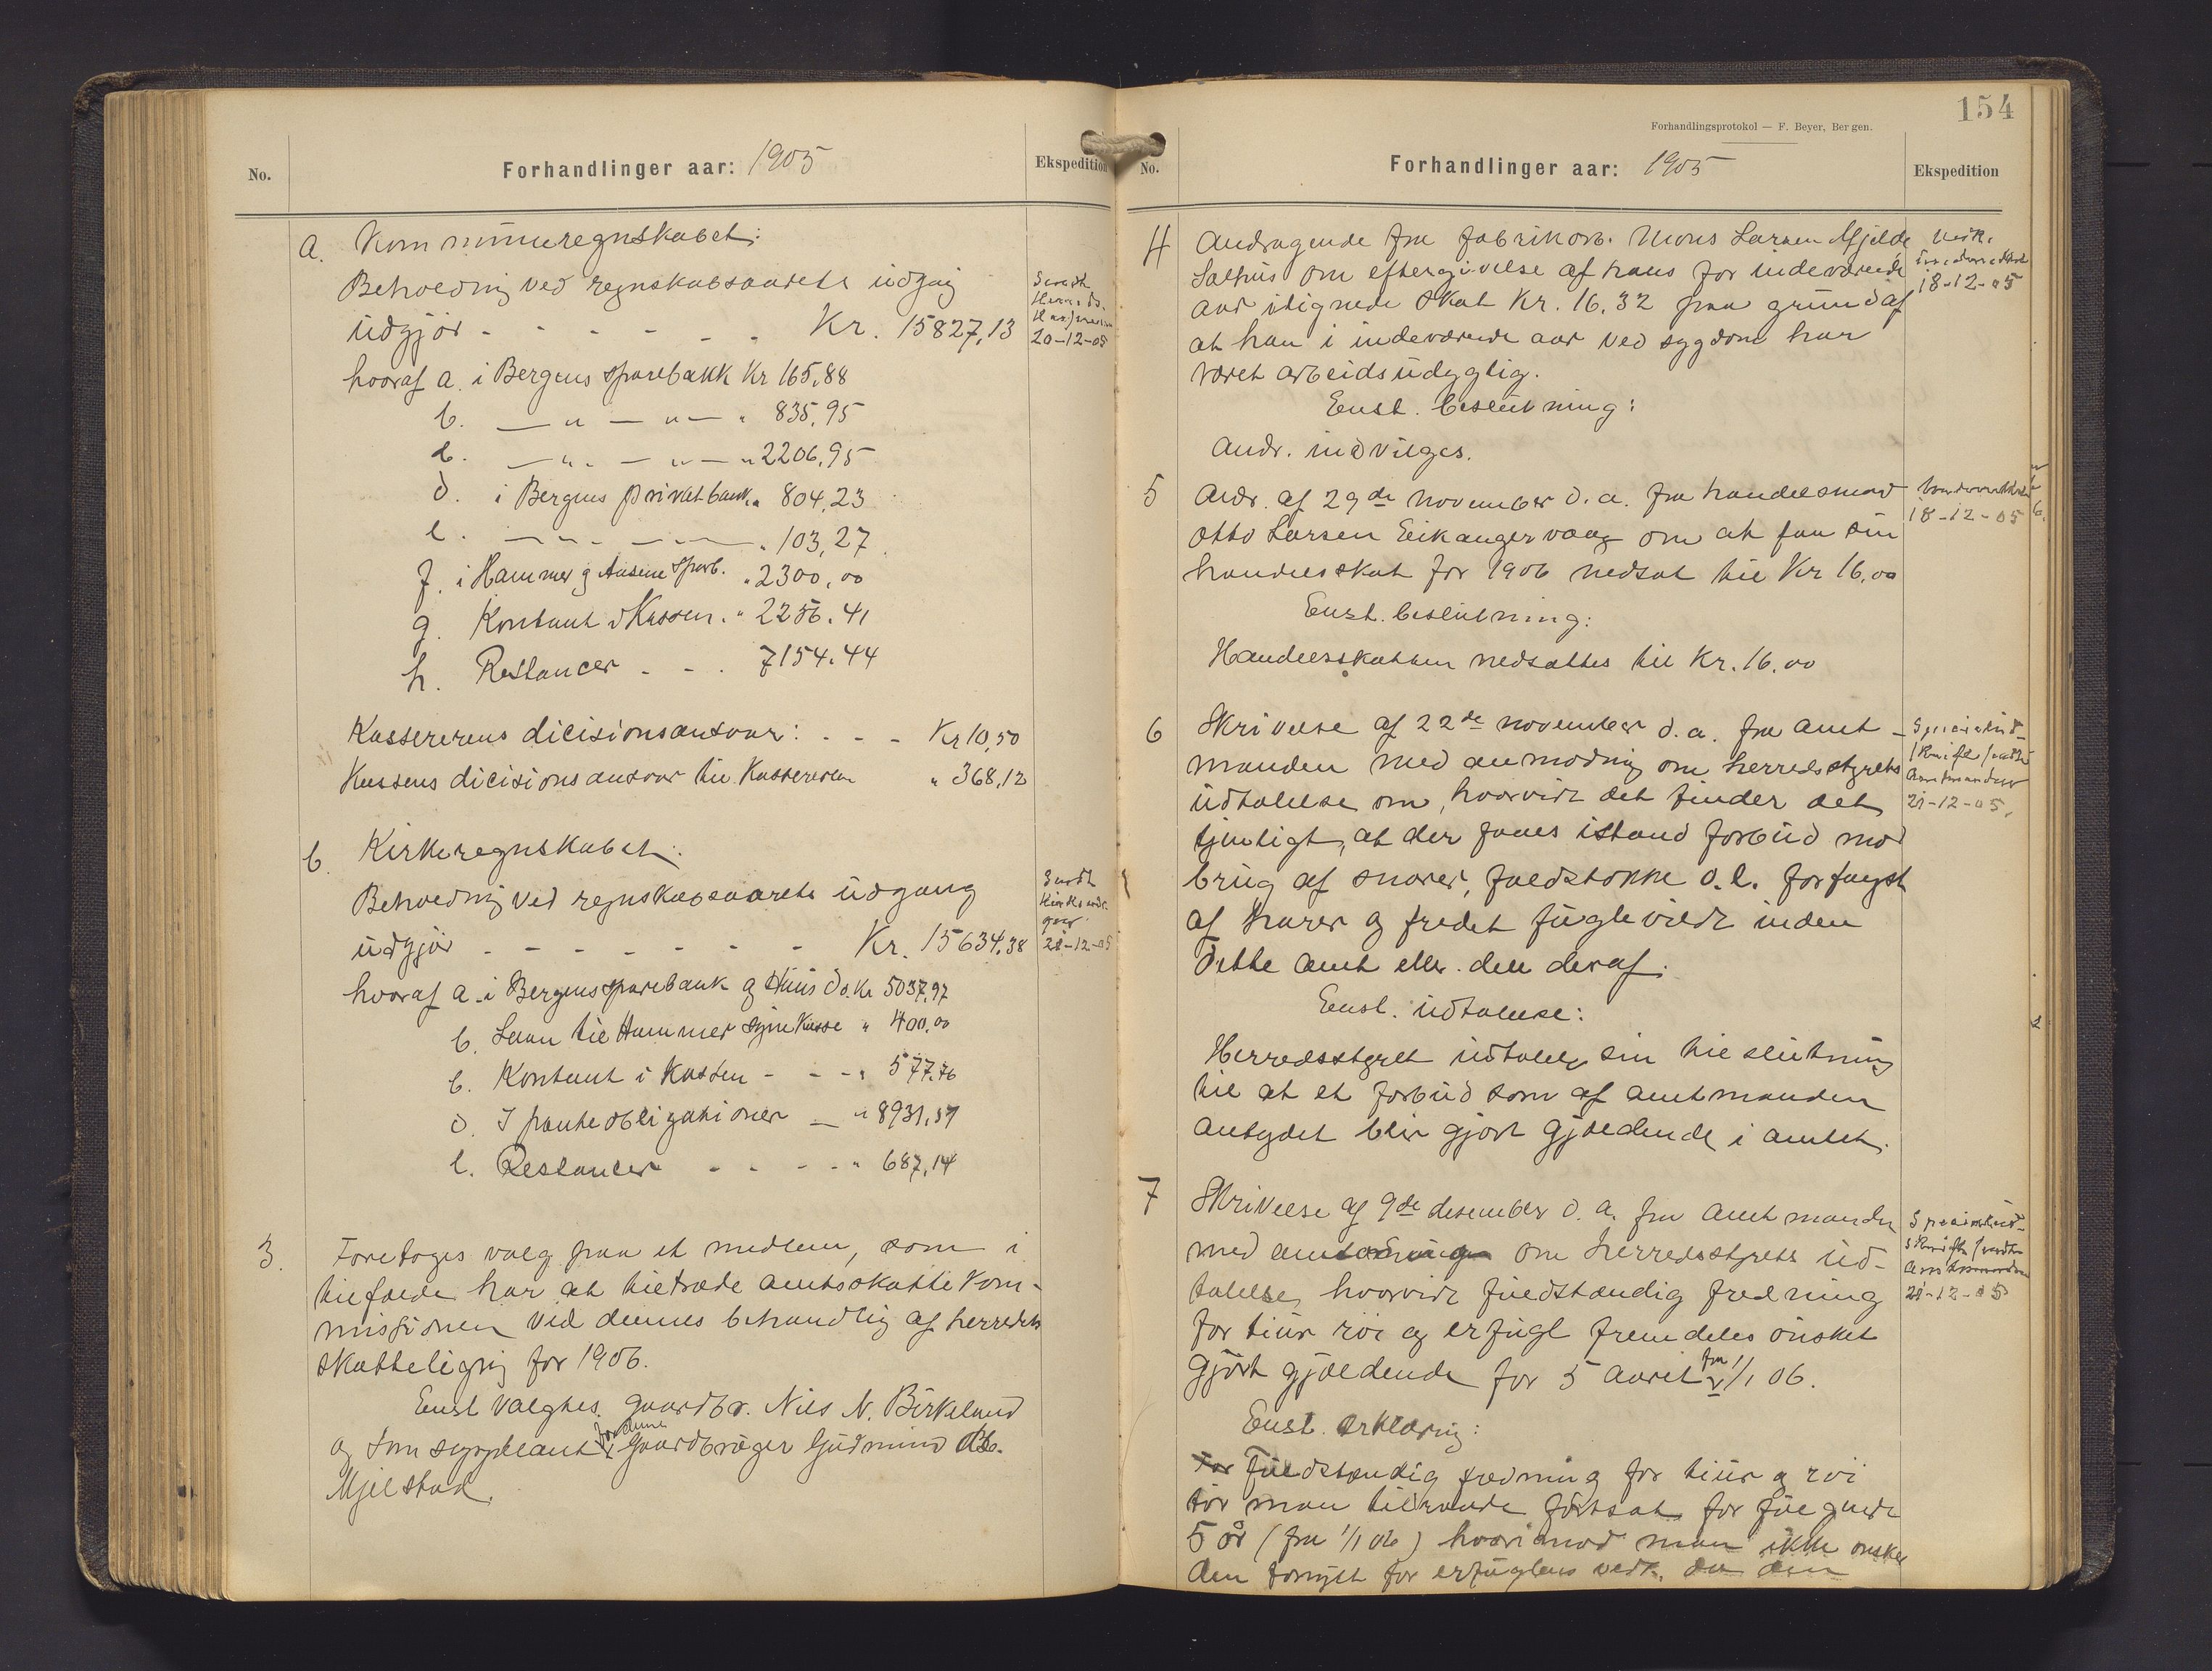 No.
Forhandlinger aar: 1905
Ekspedition
a. Kommuneregnskabet:
Beholdning ved regnskabsaarets udgang
udgjör - - - - - - Kr. 15827,13
Sendt
Herreds
20-12-05
hvoraf a. i Bergens sparebank Kr 165,88
b. — " — " — " 835,95
c. — " — " — " 2206,95
d. i Bergens privatbank " 804,23
e. — " — — " 103,27
f. i Hammer og Aasene Sparb. " 2300,00
g. Kontant i Kassen. " 2256,41
h. Restancer - - . 7154.44
Kassererens dicisionsansvar: - - - Kr 10,50
Kassens dicisionsansvar til Kassereren " 368,12
b. Kirkeregnskabet:
Beholdning ved regnskabsaarets udgang
udgjör - - - - - - - Kr. 15634,38
Sendt
21-12-05
hvoraf a. i Bergens sparebank og Huus do. Kr 5037,97
b. Laan til Hammer Kasse " 400,00
c. Kontant i Kassen - - - " 577,76
d. I panteobligationer — " 8931,51
e. Restancer - - - - - " 687,14
3. Foretoges valg paa et medlem, som i
tilfælde har at tiltræde amtsskattekom-
missionen ved dennes behandling af herredets
skatteligning for 1906.
Enst valgtes gaardbr. Nils N. Birkeland
og som suppleant for denne Gaardbruger Gudmund
Mjelstad.
154
Forhandlingsprotokol — F. Beyer, Bergen.
No.
Forhandlinger aar: 1905
Ekspedition
4 Andragende fra fabrikarb. Mons Larsen Mjelde
Salhus om eftergivelse af hans for indeværende
aar ilignede skat Kr. 16,32 paa grund af
at han i indeværende aar ved sygdom har
været arbeidsudygtig.
18-12-05
Enst. beslutning:
Andr. indvilges.
5 Andr. af 29de november d.a. fra handelsmand
Otto Larsen Eikangervaag om at faa sin
handelsskat for 1906 nedsat til Kr 16,00
18-12-05
Enst. beslutning:
Handelsskatten nedsattes til Kr. 16.00
6 Skrivelse af 22de november d.a. fra amt-
manden med anmodning om herredsstyrets
udtalelse om, hvorvidt det finder det
tjenligt, at der faaes istand forbud mod
brug af snarer, fældstokke o.l. for fangst
af harer og fredet fuglevildt inden
dette amt eller del deraf.
Amtmanden
21-12-05.
Enst. udtalelse:
Herredsstyret udtaler sin tilslutning
til at et forbud som af amtmanden
antydet blir gjort gjældende i amtet.
7 Skrivelse af 9de desember d.a. fra amtmanden
med om herredsstyrets ud-
talelse, hvorvidt fuldstændig fredning
for tiur röi og erfugl fremdeles önskes
gjört gjældende for 5 aaret fra 1/1 06.
Amtmanden
21-12-05
Enst. Erklæring:
Fuldstændig fredning for tiur og röi
tör man tilraade fortsat for fölgende
5 år (fra 1/1 06) hvorimod man ikke önsker
den fornyet for erfuglens vedk. da den